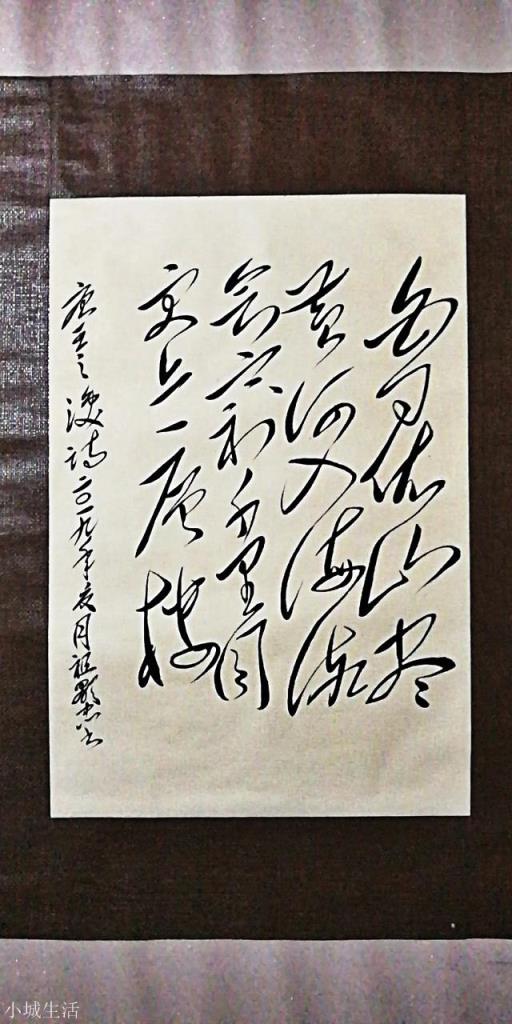 白日依山尽
黄河入海流
欲穷千里目
更上一层楼
唐王之涣诗二〇一九年夏月祖书
小城生活